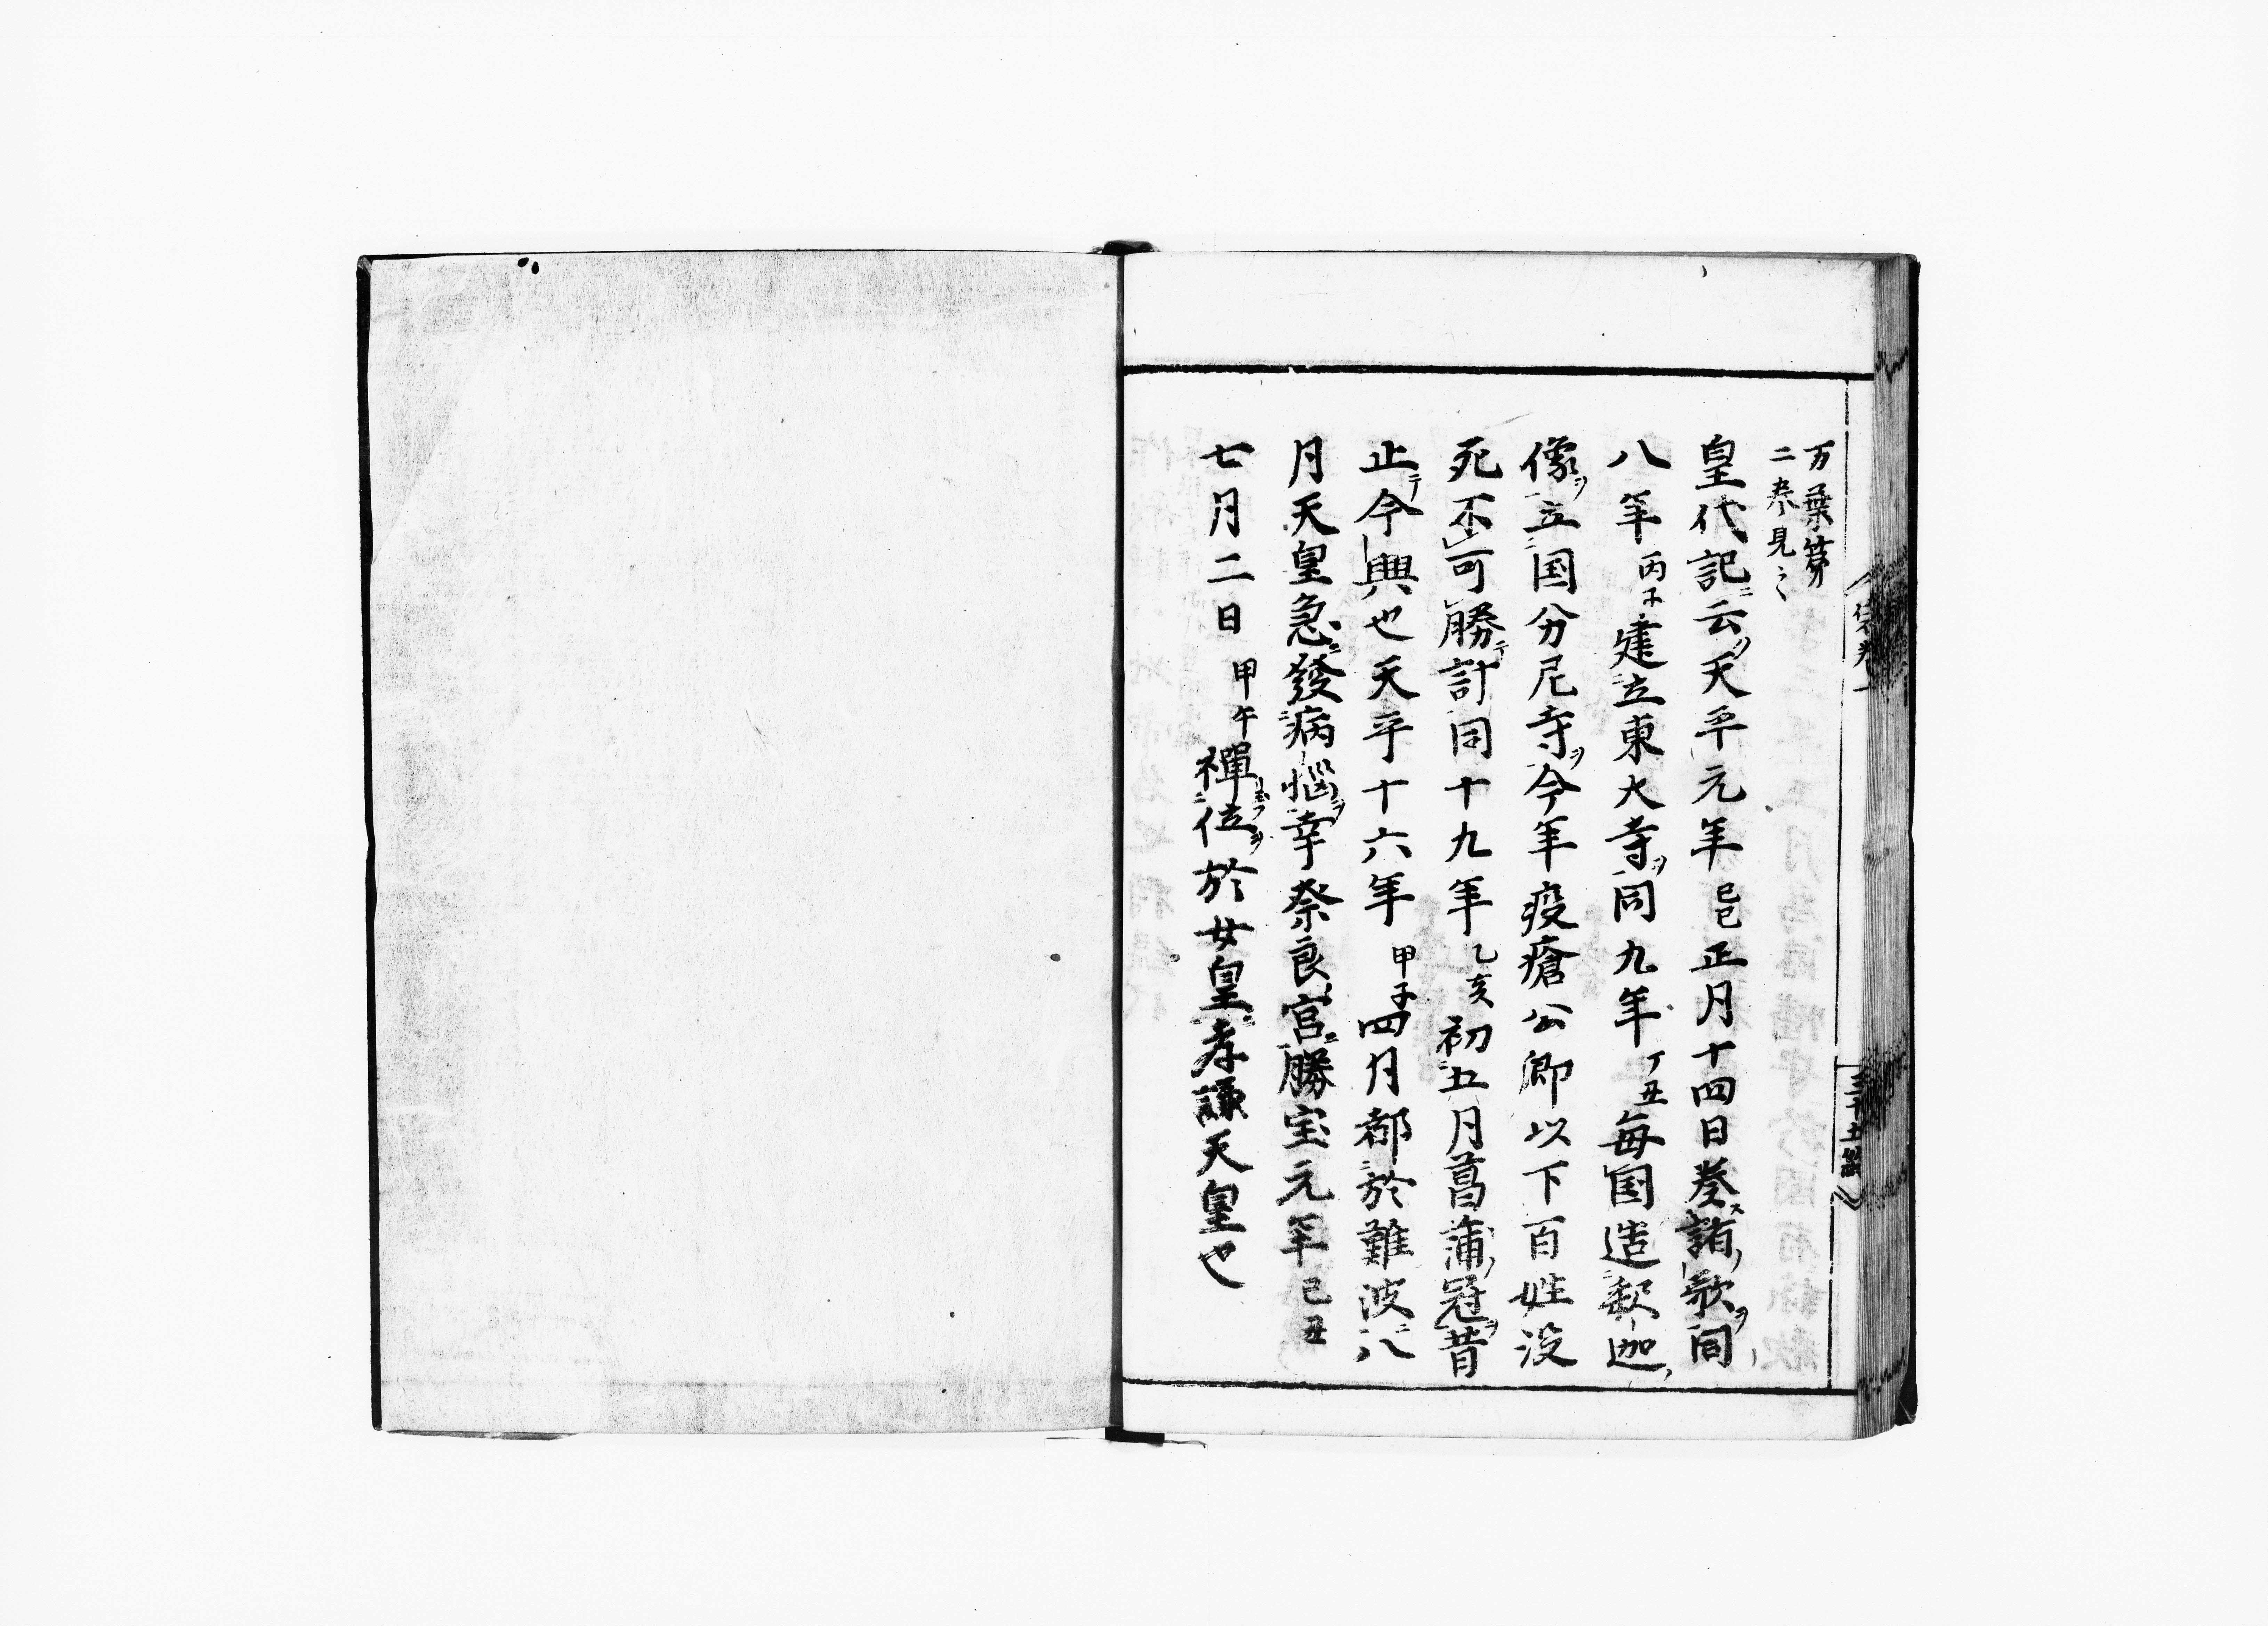 万葉第
二巻見之
皇代記ニ云ク天平元年己巳正月十四日巻諸歌ヲ同
八年丙子建立東大寺ヲ同九年丁丑毎国造釈迦
像ヲ立国分尼寺ヲ今年疫瘡公卿以下百姓没
死不可勝計同十九年乙亥初五月菖蒲冠ヲ昔
止テ今興也天平十六年甲子四月都於難波八
月天皇急発病悩幸奈良宮勝宝元年己丑
七月二日甲午禅位於女皇孝謙天皇也